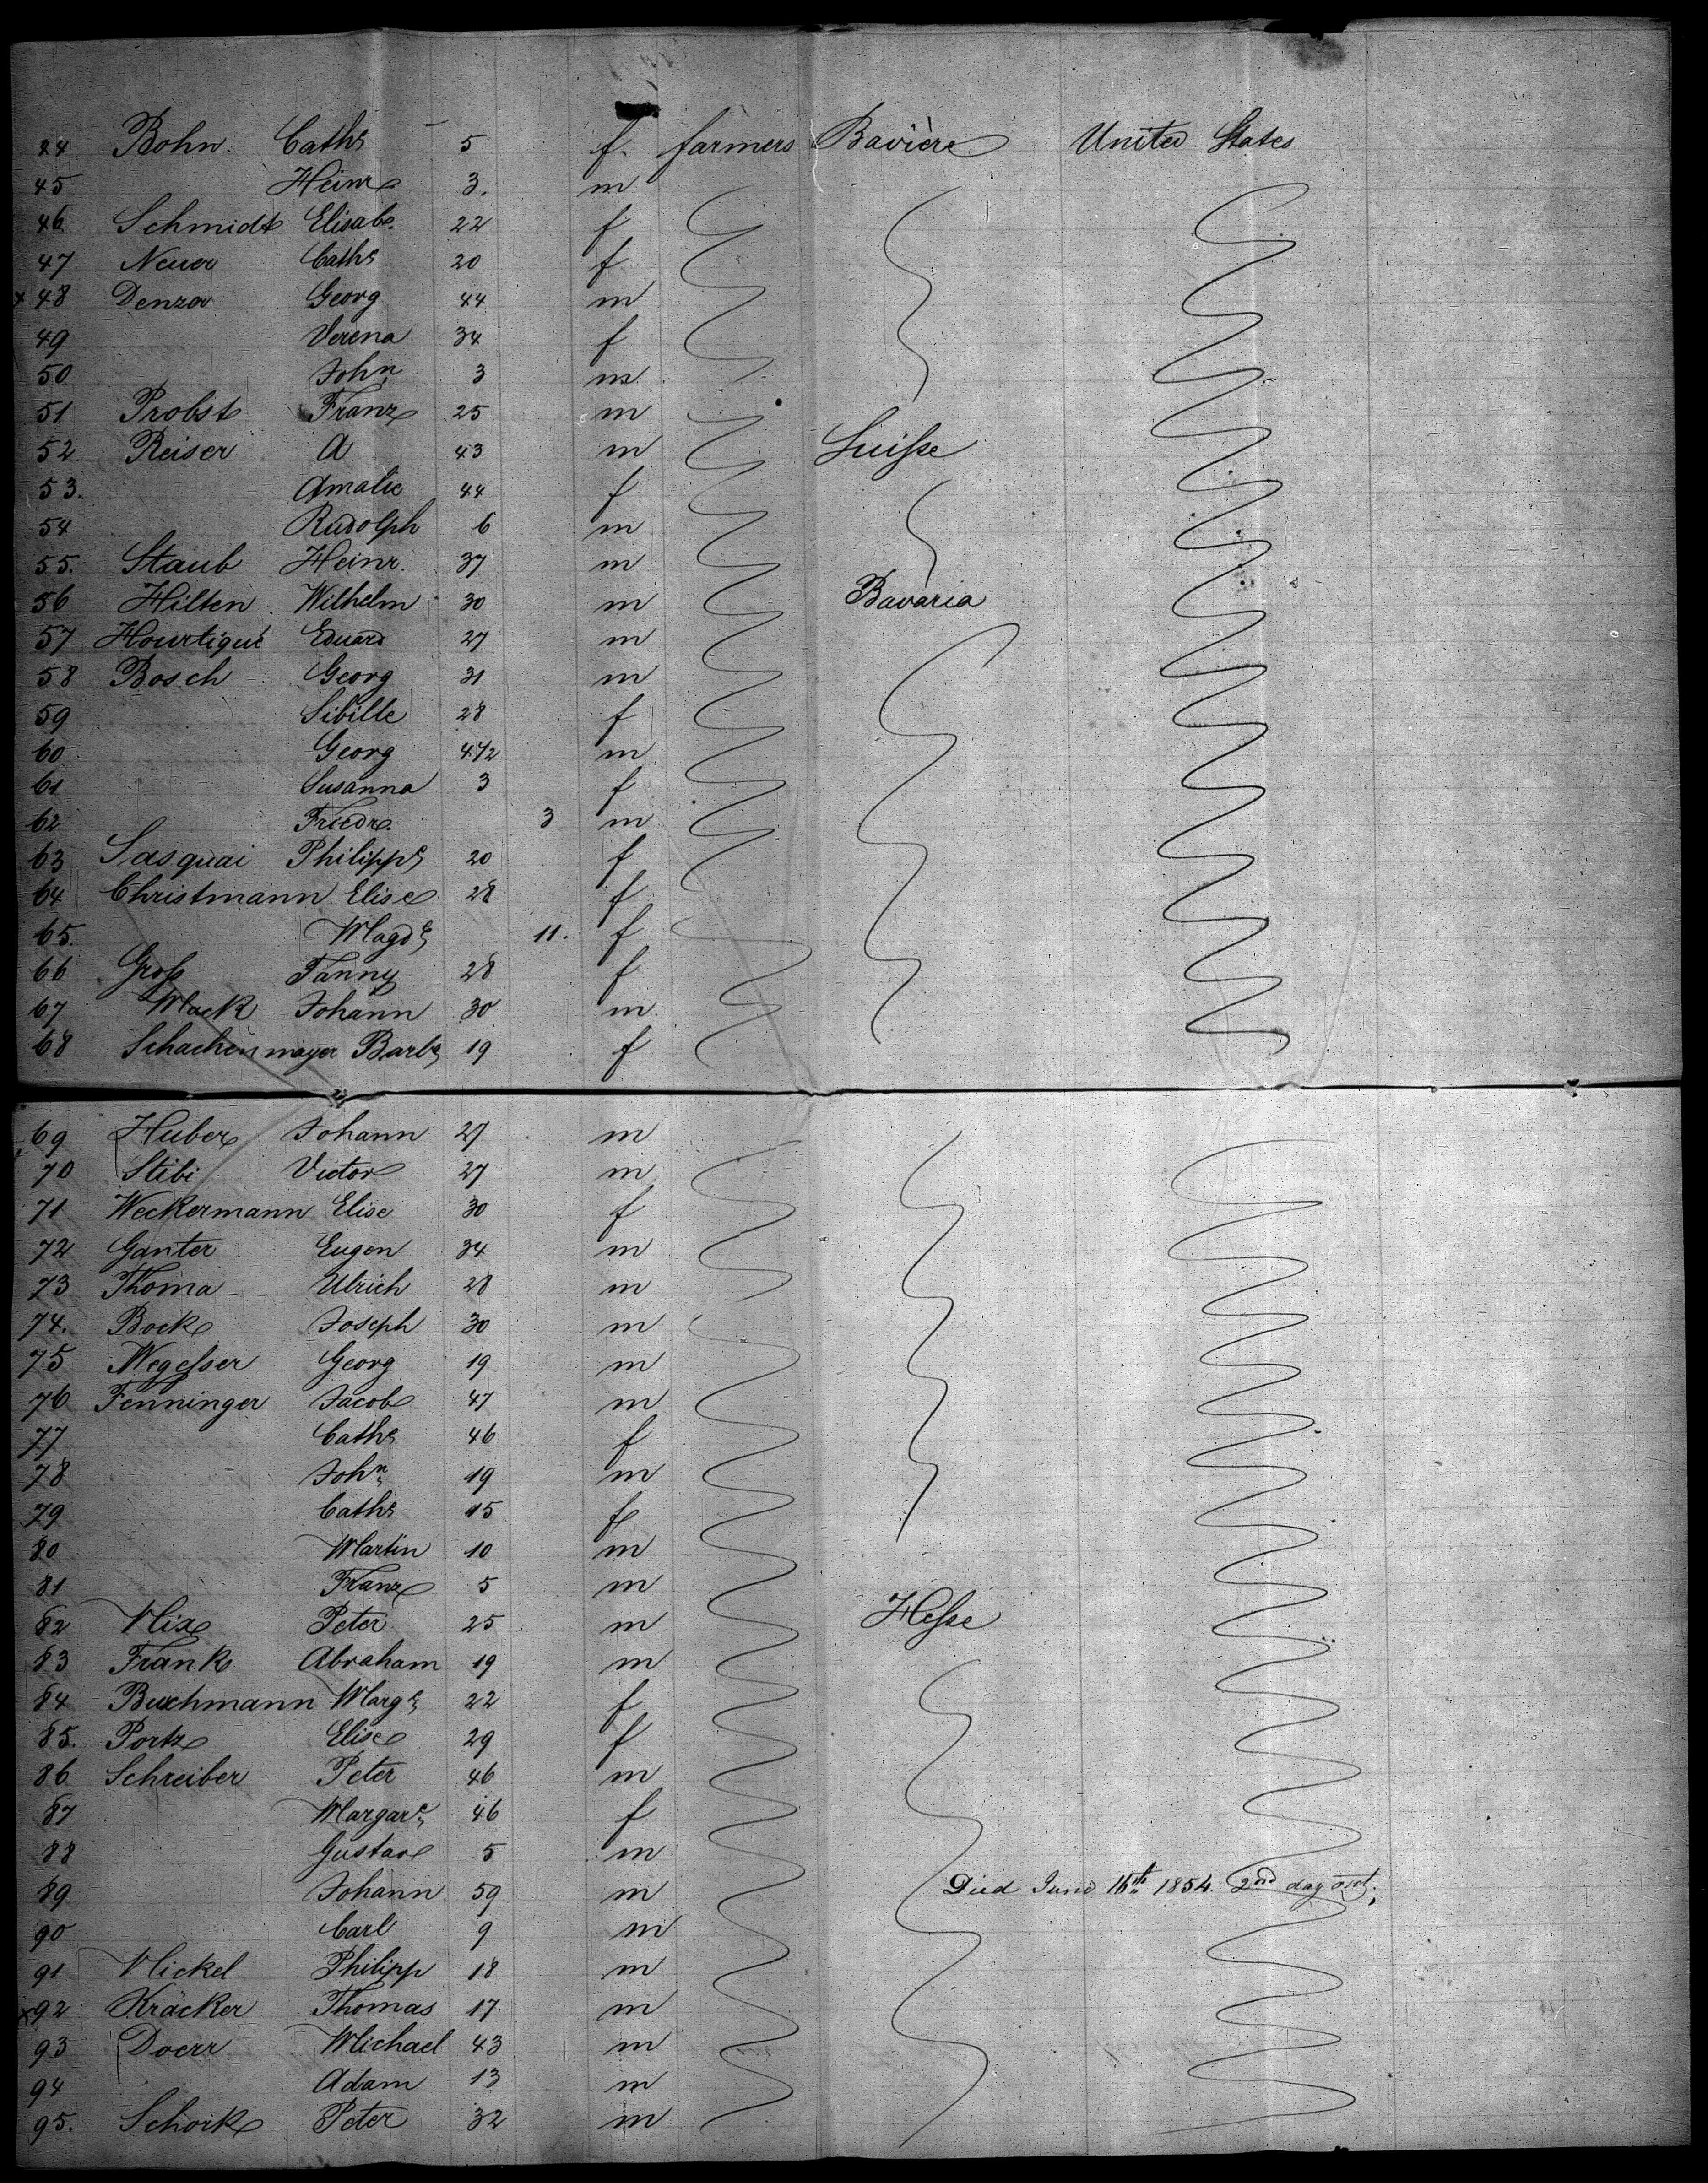 44 Bohn Cathe 5 f. farmers Bavière United States
45 Heinr 3. m
46 Schmidt Elisab. 22 f
47 Neuer Cathe 20 f
x 48 Denzer Georg 44 m
49 Verena 34 f
50 John 3 m
51 Probst Franz 25 m
52 Reiser A 43 m Suiſse
53. Amalie 44 f
54 Rudolph 6 m
55. Staub Heinr. 37 m
56 Hilten Wilhelm 30 m Bavaria
57 Hourtiqué Eduard 27 m
58 Bosch Georg 31 m
59 Sibille 28 f
60 Georg 4 1/2 m
61 Susanna 3 f
62 Friedr. 3 m
63 Sasquai Philippe 20 f
64 Christmann Elise 28 f
65. Magde 11. f
66 Groſs Fanny 28 f
67 Mack Johann 30 m
68 Schachenmayer Barbe 19 f
69 Huber Johann 27 m
70 Stibi Victor 27 m
71 Weckermann Elise 30 f
72 Ganter Eugen 34 m
73 Thoma Ulrich 28 m
74. Bock Joseph 30 m
75 Georg 19 m
76 Fenninger Jacob 47 m
77 Cathe 46 f
78 John 19 m
79 Cathe 15 f
80 Martin 10 m
81 Franz 5 m
82 Nix Peter 25 m Heſse
83 Frank Abraham 19 m
84 Buchmann Marge 22 f
85. Portz Elise 29 f
86 Schreiber Peter 46 m
87 Margare 46 f
88 Gustav 5 m
89 Johann 59 m Died June 16th 1854. 2nd day out.
90 Carl 9 m
91 Nickel Philipp 18 m
x 92 Kräcker Thomas 17 m
93 Doerr Michael 43 m
94 Adam 13 m
95. Schork Peter 32 m